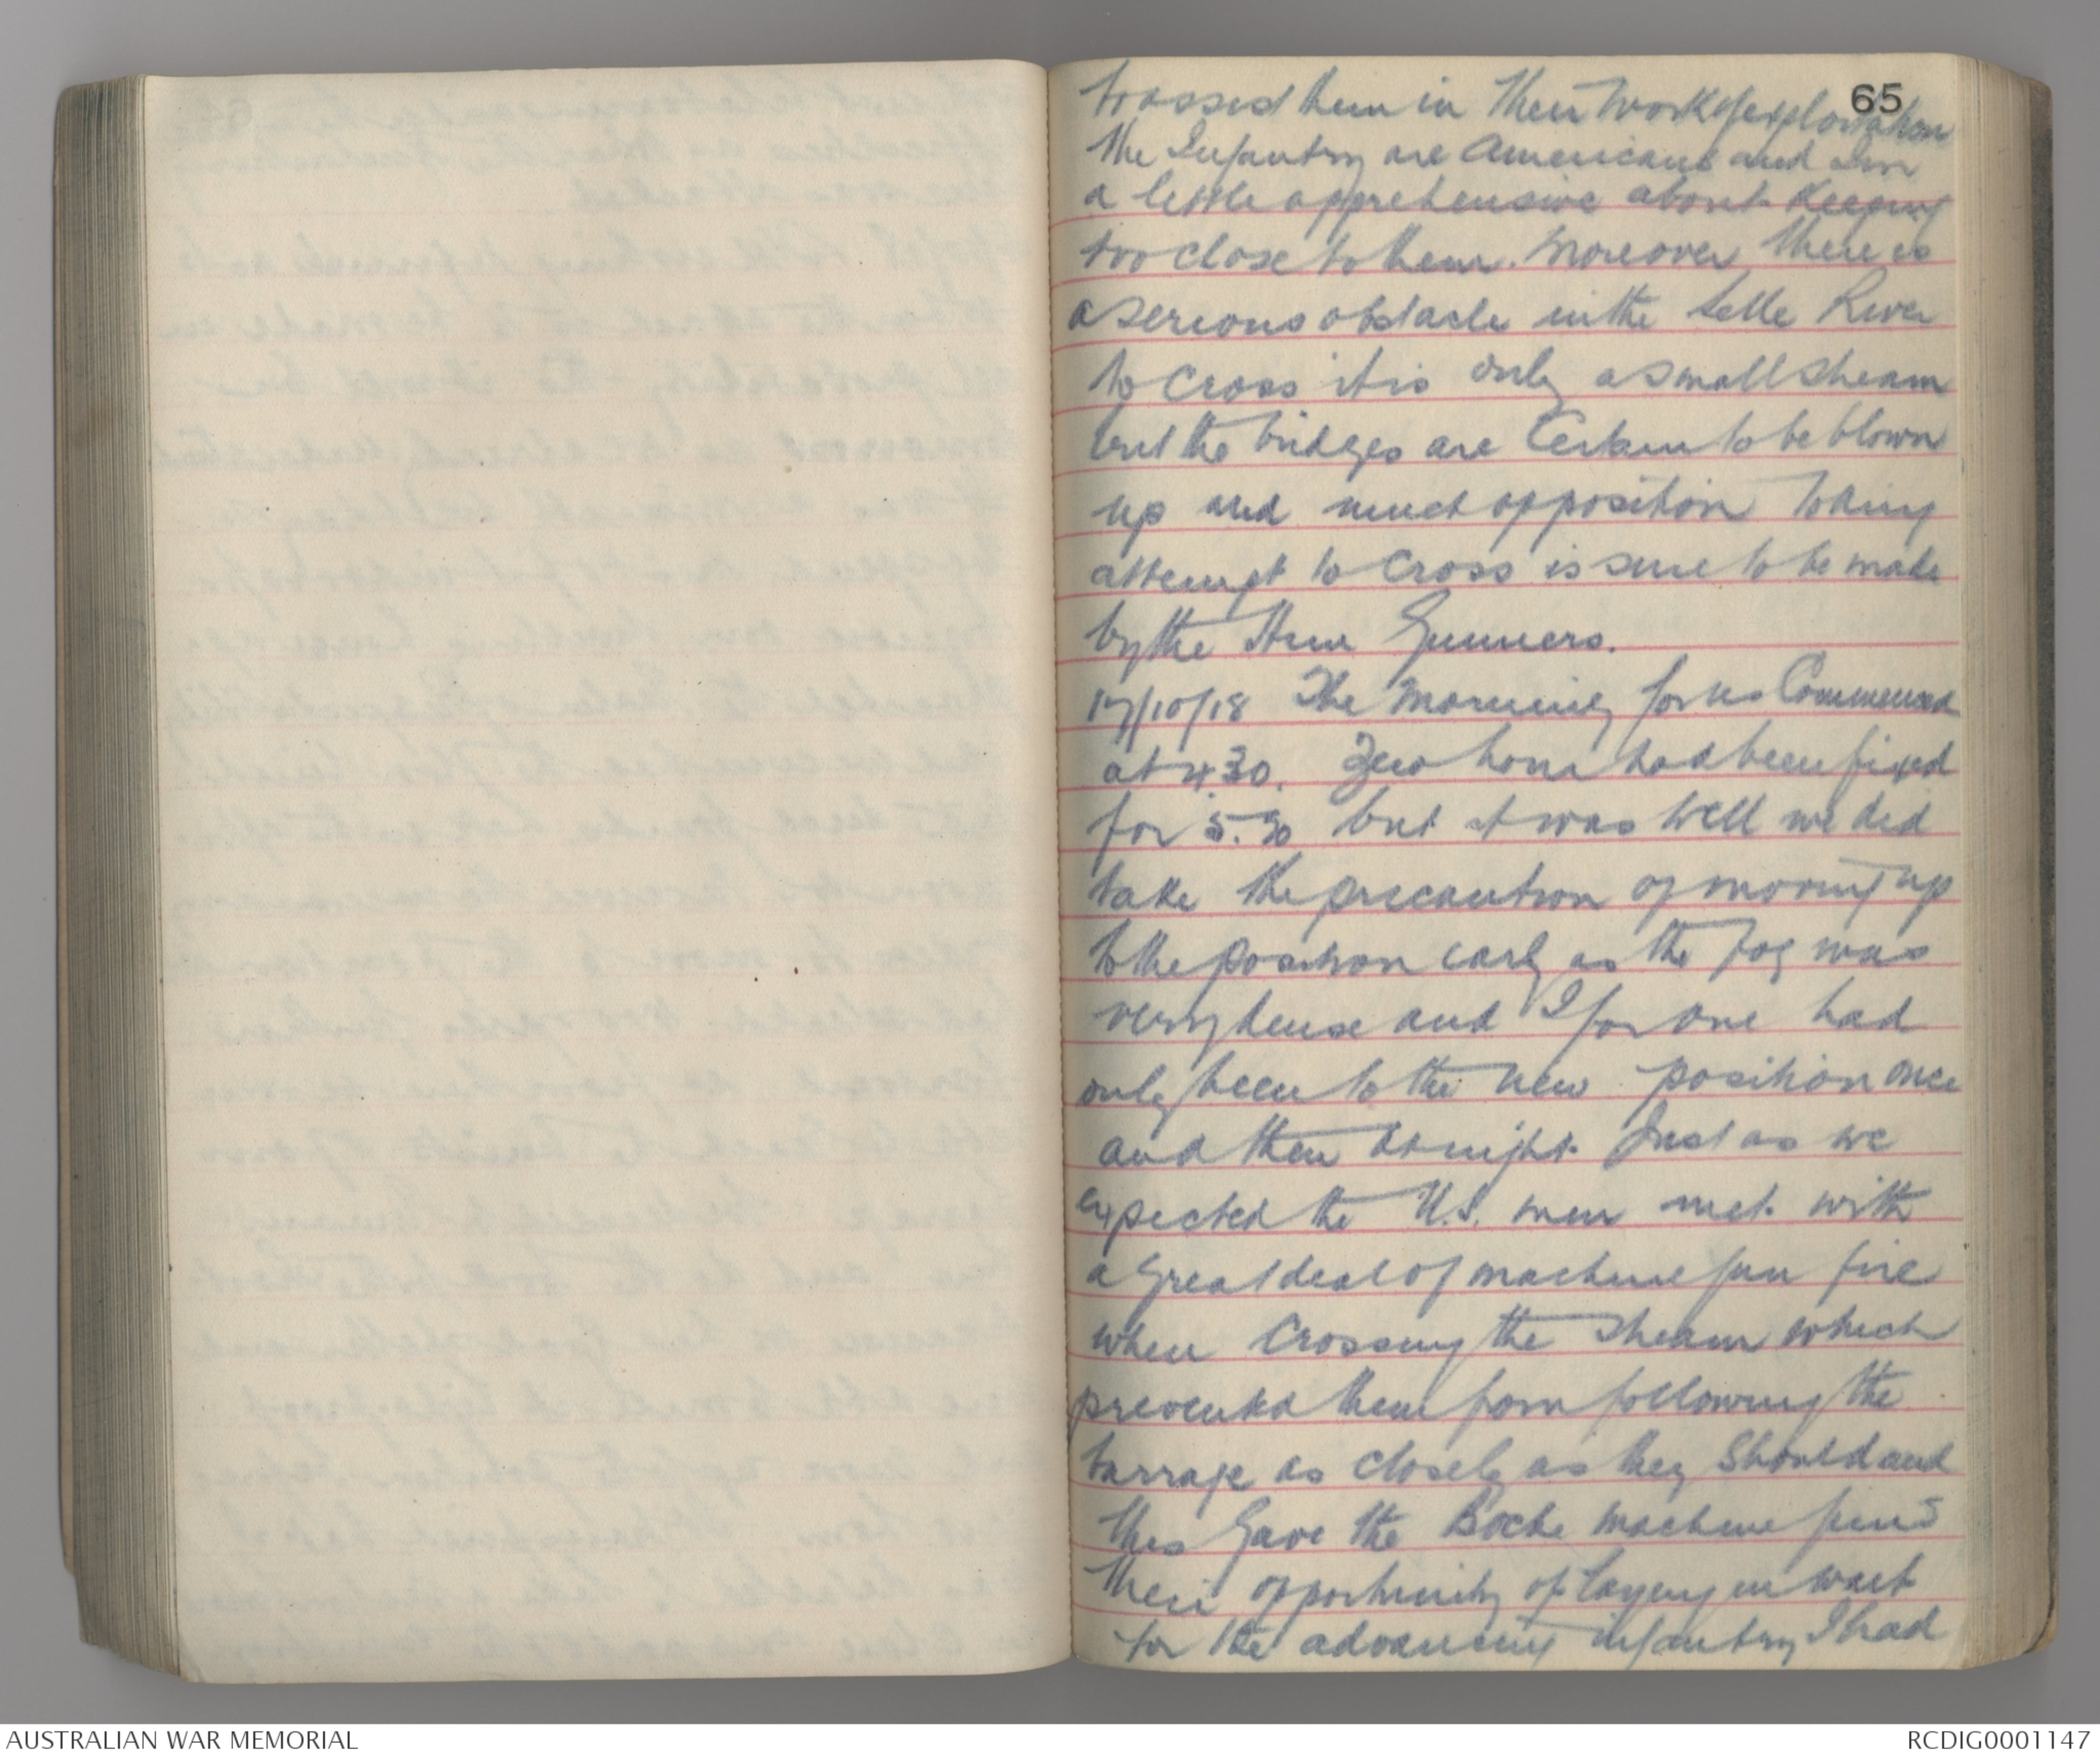 65
to assist them in their work of exploitation
the Infantry are Americans and I'm
a little apprehensive about keeping
too close to them. Moreover there is
a serious obstacle in the Selle River
to cross it is only a small stream
but the bridges are certain to be blown
up and much opposition to any
attempt to cross is sure to be made
by the Hun Gunners.
17/10/18 The morning for us Commenced
at 4.30. Zero hour had been fixed
for 5.30 but it was well we did
take the precaution of moving up
to the position early as the fog was
very dense and I for one had
only been to the new position once
and then at night. Just as we
expected the U.S. men met with
a great deal of machine gun fire
when crossing the stream which
prevented them from following the
barrage as closely as they should and
this gave the Boche machine guns
their opportunity of laying in wait
for the advancing infantry I had
AUSTRALIAN WAR MEMORIAL
RCDIG0001147